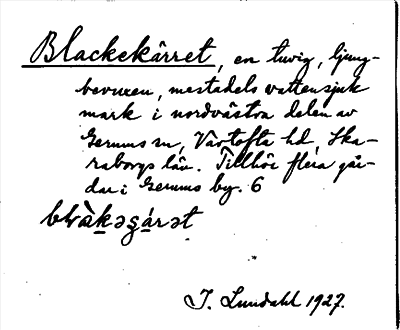 Blackekärret, en tuvig, ljung-
bevuxen, mestadels vattensjuk
mark i nordvästra delen av
Gerums sn, Vartofta hd, Ska-
raborgs län. Tillhör flera går-
dar i Gerums by. 6
I. Lundahl 1927.